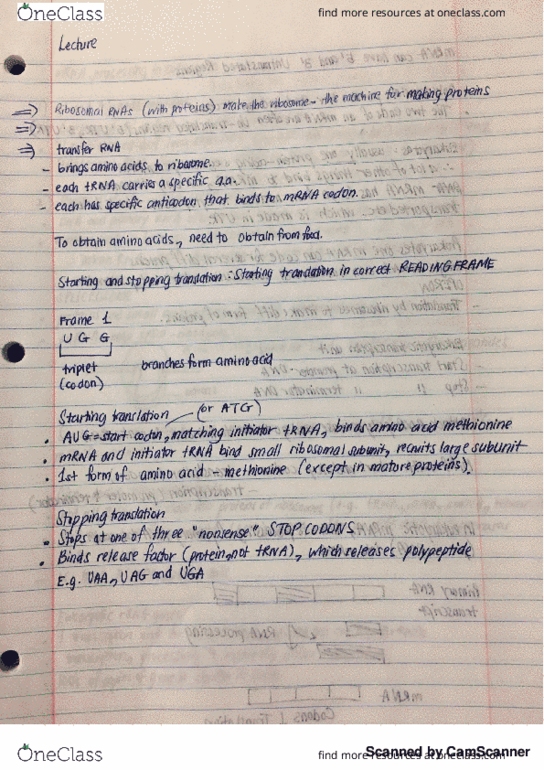 OneClass
find more resources at oneclass.com
Lecture
⇒) Ribosomal RNAs (with proteins) make the ribosome - the machine for making proteins
⇒)
⇒) transfer RNA
- brings amino acids to ribosome.
- each tRNA carries a specific a.a.
- each has specific anticodon that binds to mRNA codon.
To obtain amino acids, need to obtain from food.
Starting and stopping translation: Starting translation in correct READING FRAME
Frame 1
U G G
triplet branches form amino acid
(codon)
Starting translation (or ATG)
• AUG = start codon, matching initiator tRNA, binds amino acid methionine
• mRNA and initiator tRNA bind small ribosomal subunit, recruits large subunit
• 1st form of amino acid - methionine (except in mature proteins).
Stopping translation
• Stops at one of three "nonsense" STOP CODONS
• Binds release factor (protein, not tRNA), which releases polypeptide
E.g. UAA, UAG and UGA
OneClass
find more resources at oneclass.com
Scanned by CamScanner